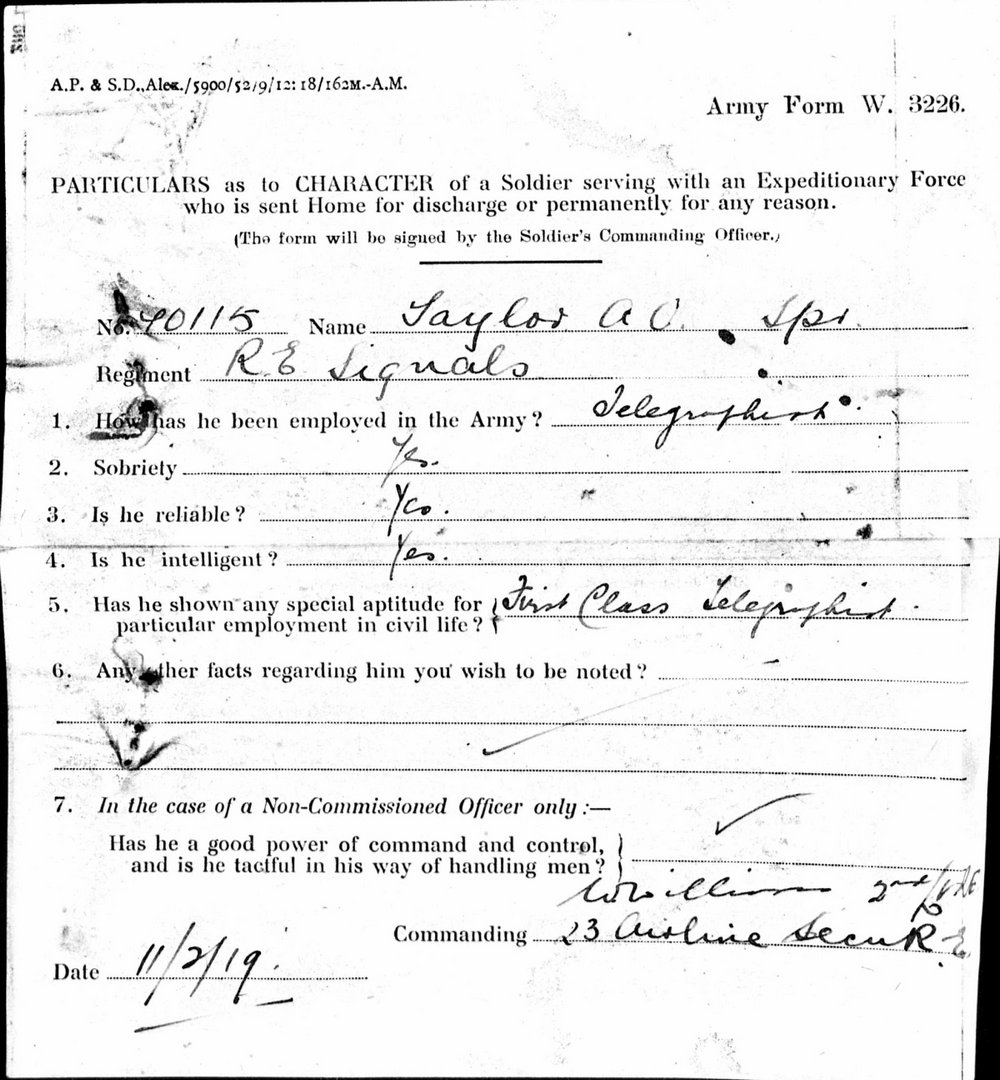 A.P. & S.D., Alex./5900/52/9/12:18/162M.-A.M.
Army Form W. 3226.
PARTICULARS as to CHARACTER of a Soldier serving with an Expeditionary Force
who is sent Home for discharge or permanently for any reason.
(The form will be signed by the Soldier's Commanding Officer.)
No. 70115 Name Taylor A O. Spr.
Regiment R E Signals
1. How has he been employed in the Army? Telegraphist.
2. Sobriety Yes.
3. Is he reliable? Yes.
4. Is he intelligent? Yes.
5. Has he shown any special aptitude for First Class Telegraphist.
particular employment in civil life?
6. Any other facts regarding him you wish to be noted? —
7. In the case of a Non-Commissioned Officer only:—
Has he a good power of command and control,
and is he tactful in his way of handling men?
2nd/Lt RE
Commanding 23 Airline Secn R.E.
Date 11/2/19.